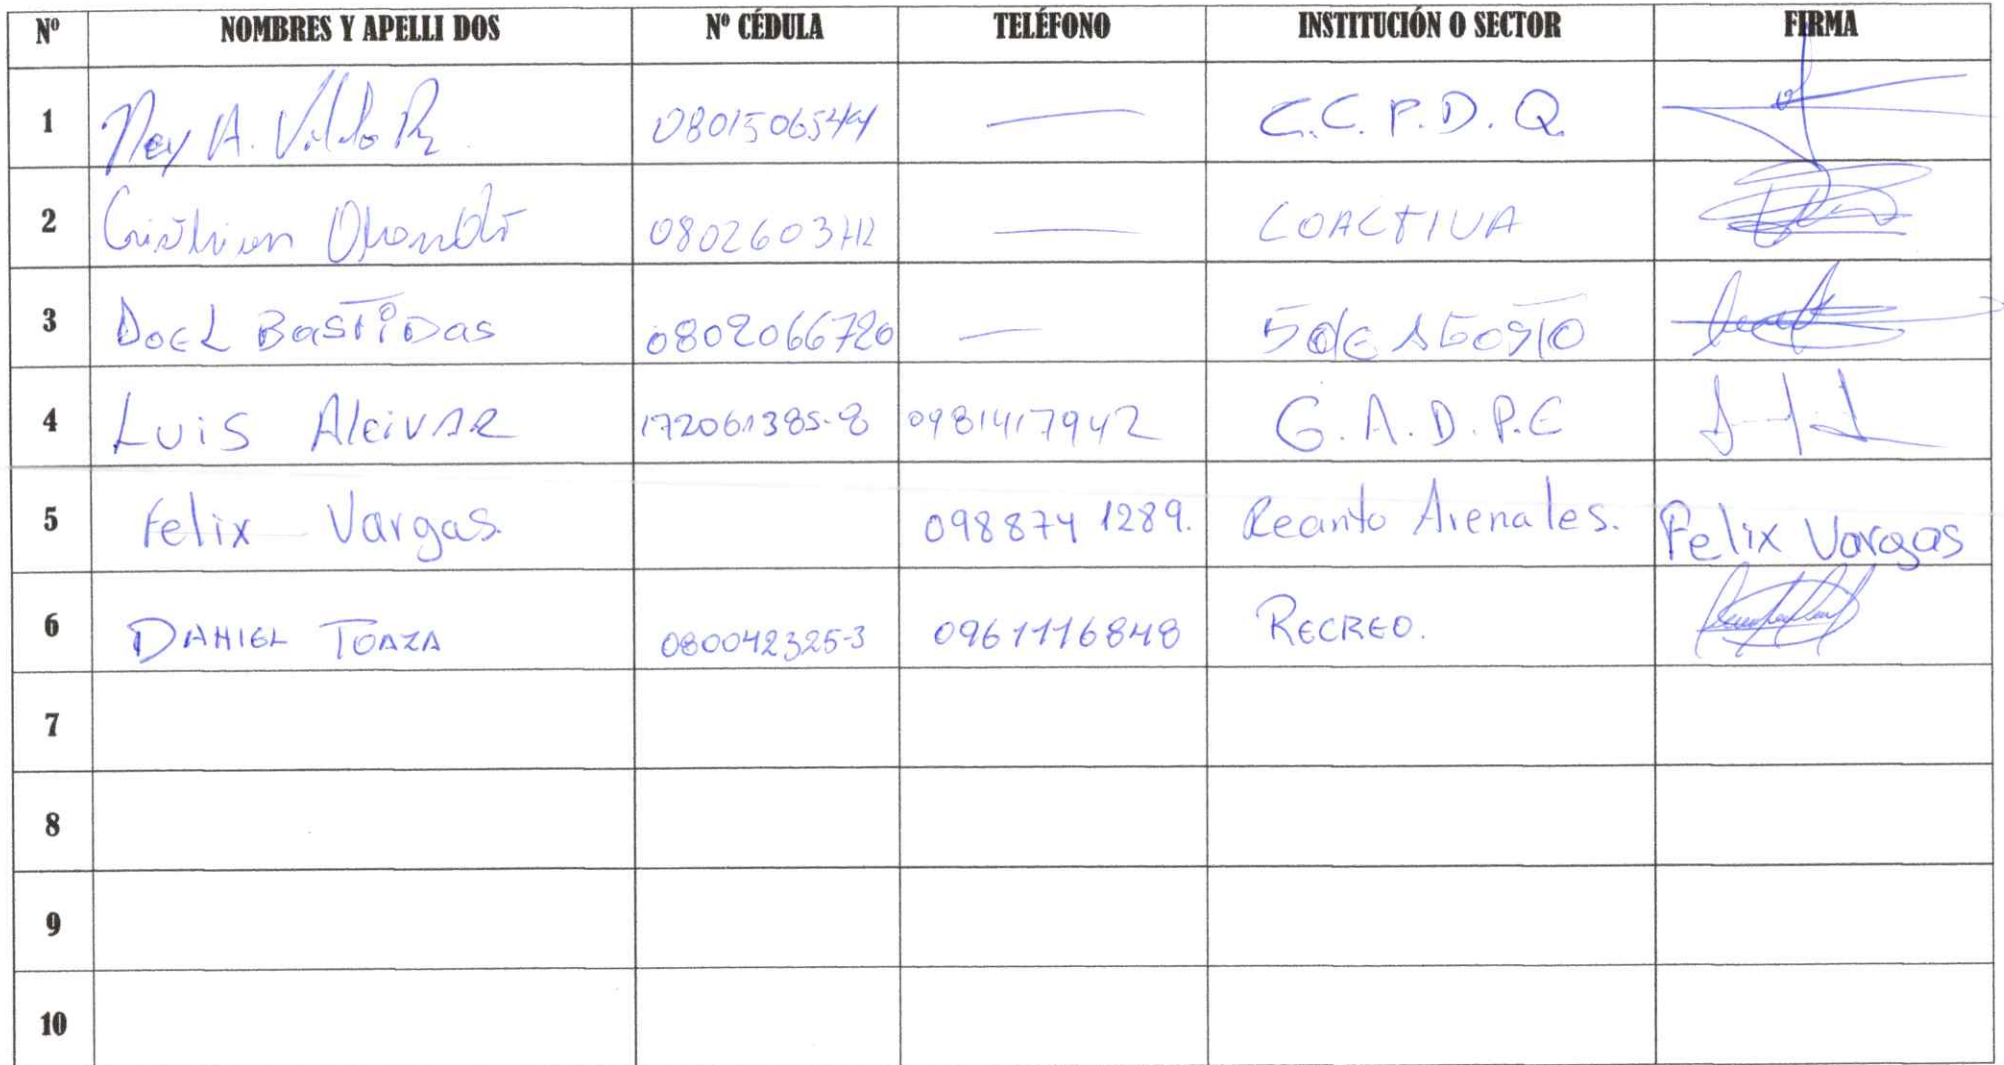 Nº NOMBRES Y APELLI DOS Nº CÉDULA TELÉFONO INSTITUCIÓN O SECTOR FIRMA
1 Ney A. C.C.P.D.Q.
2 COACTIVA
3 DOEL BASTIDAS 0802066720 — 5 de AGOSTO
4 Luis Alcivar 172061385-8 0981417942 G.A.D.P.E
5 Felix Vargas. 098874 1289. Recinto Arenales. Felix Vargas
6 DANIEL TOAZA 080042325-3 0961116848 RECREO.
7
8
9
10